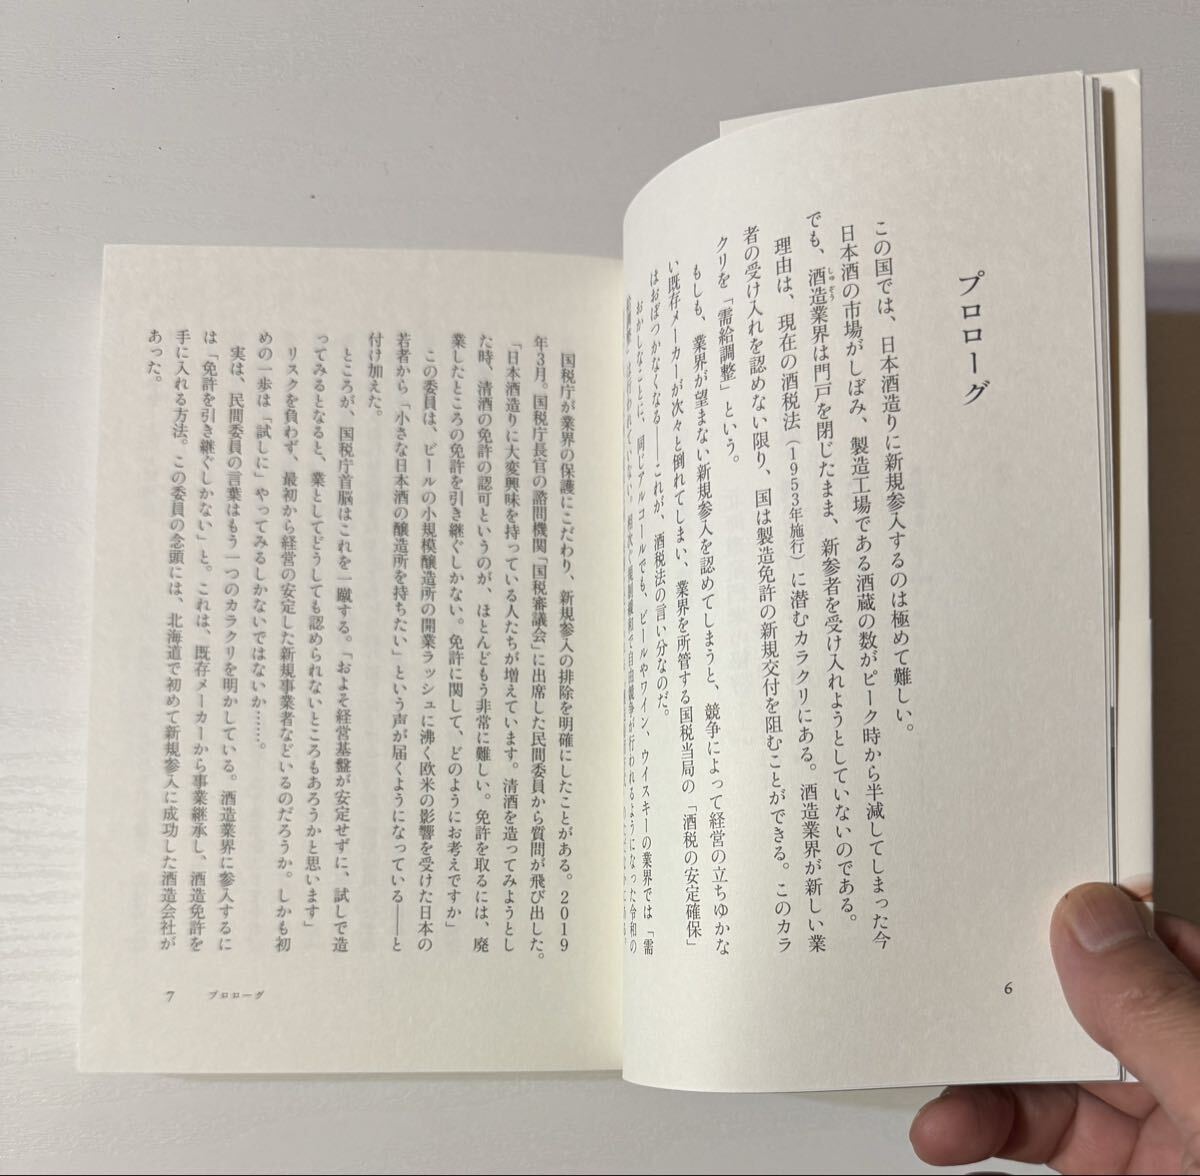 プロローグ
この国では、日本酒造りに新規参入するのは極めて難しい。
日本酒の市場がしぼみ、製造工場である酒蔵の数がピーク時から半減してしまった今
でも、酒造業界は門戸を閉じたまま、新参者を受け入れようとしていないのである。
しゅぞう
理由は、現在の酒税法（1953年施行）に潜むカラクリにある。酒造業界が新しい業
者の受け入れを認めない限り、国は製造免許の新規交付を阻むことができる。このカラ
クリを「需給調整」という。
もしも、業界が望まない新規参入を認めてしまうと、競争によって経営の立ちゆかな
い既存メーカーが次々と倒れてしまい、業界を所管する国税当局の「酒税の安定確保」
はおぼつかなくなる——これが、酒税法の言い分なのだ。
おかしなことに、同じアルコールでも、ビールやワイン、ウイスキーの業界では「需
給調整」は行われていない。相次ぐ規制緩和で自由競争が行われるようになった令和の
6
国税庁が業界の保護にこだわり、新規参入の排除を明確にしたことがある。2019
年3月。国税庁長官の諮問機関「国税審議会」に出席した民間委員から質問が飛び出した。
「日本酒造りに大変興味を持っている人たちが増えています。清酒を造ってみようとし
た時、清酒の免許の認可というのが、ほとんどもう非常に難しい。免許を取るには、廃
業したところの免許を引き継ぐしかない。免許に関して、どのようにお考えですか」
この委員は、ビールの小規模醸造所の開業ラッシュに沸く欧米の影響を受けた日本の
若者から「小さな日本酒の醸造所を持ちたい」という声が届くようになっている——と
付け加えた。
ところが、国税庁首脳はこれを一蹴する。「およそ経営基盤が安定せずに、試しで造
ってみるとなると、業としてどうしても認められないところもあろうかと思います」
リスクを負わず、最初から経営の安定した新規事業者などいるのだろうか。しかも初
めの一歩は「試しに」やってみるしかないではないか……。
実は、民間委員の言葉はもう一つのカラクリを明かしている。酒造業界に参入するに
は「免許を引き継ぐしかない」と。これは、既存メーカーから事業継承し、酒造免許を
手に入れる方法。この委員の念頭には、北海道で初めて新規参入に成功した酒造会社が
あった。
7 プロローグ